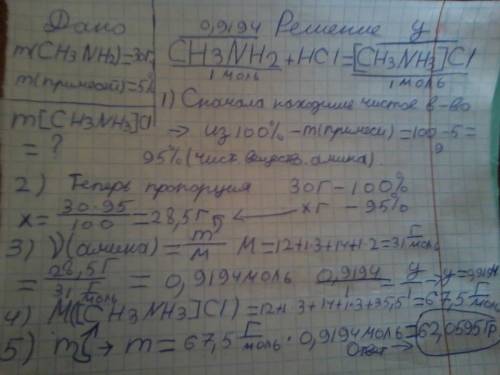 Дано
m(CH3NH2)=30г
m(примесей)=5%
m[CH3NH3]Cl
= ?
Решение
0,9194 y
CH3NH2+HCl=[CH3NH3]Cl
1 моль 1 моль
1) Сначала находише чистое в-во
→ из 100% - m(примеси)=100-5=
95% (чист. веществ. амина).
2) Теперь пропорция 30г - 100%
x = 30·95/100 = 28,5г ← xг - 95%
3) V(амина)= m/M M=12+1·3+14+1·2=31 г/моль
= 28,5г / 31 г/моль = 0,9194 моль 0,9194/1 = y/1 → y=0,9194
4) M([CH3NH3]Cl)=12+1·3+14+1·3+35,5=67,5 г/моль
5) m → m = 67,5 г/моль · 0,9194 моль = 62,0595гр
Ответ